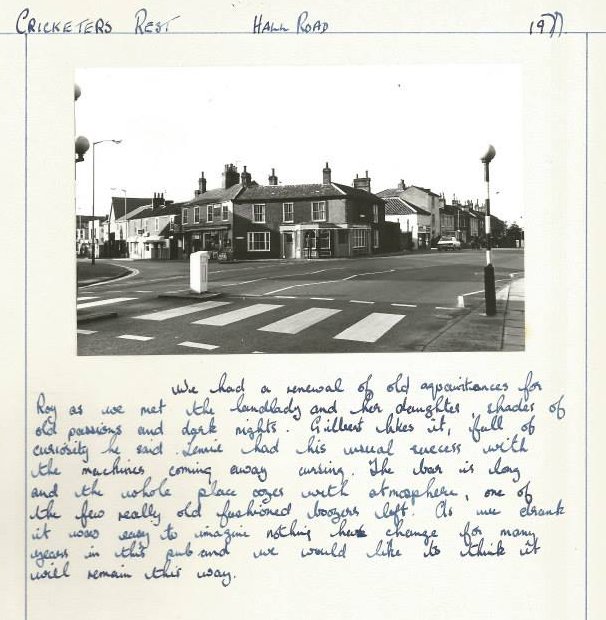 CRICKETERS REST HALL ROAD 1977
We had a renewal of old aquaintances for
Roy as we met the landlady and her daughter, shades of
old passions and dark nights. Gilbert likes it, full of
curiosity he said. Lennie had his usual success with
the machines coming away cursing. The bar is long
and the whole place oozes with atmosphere, one of
the few really old fashioned boozers left. As we drank
it was easy to imagine nothing change for many
years in this pub and we would like to think it
will remain this way.